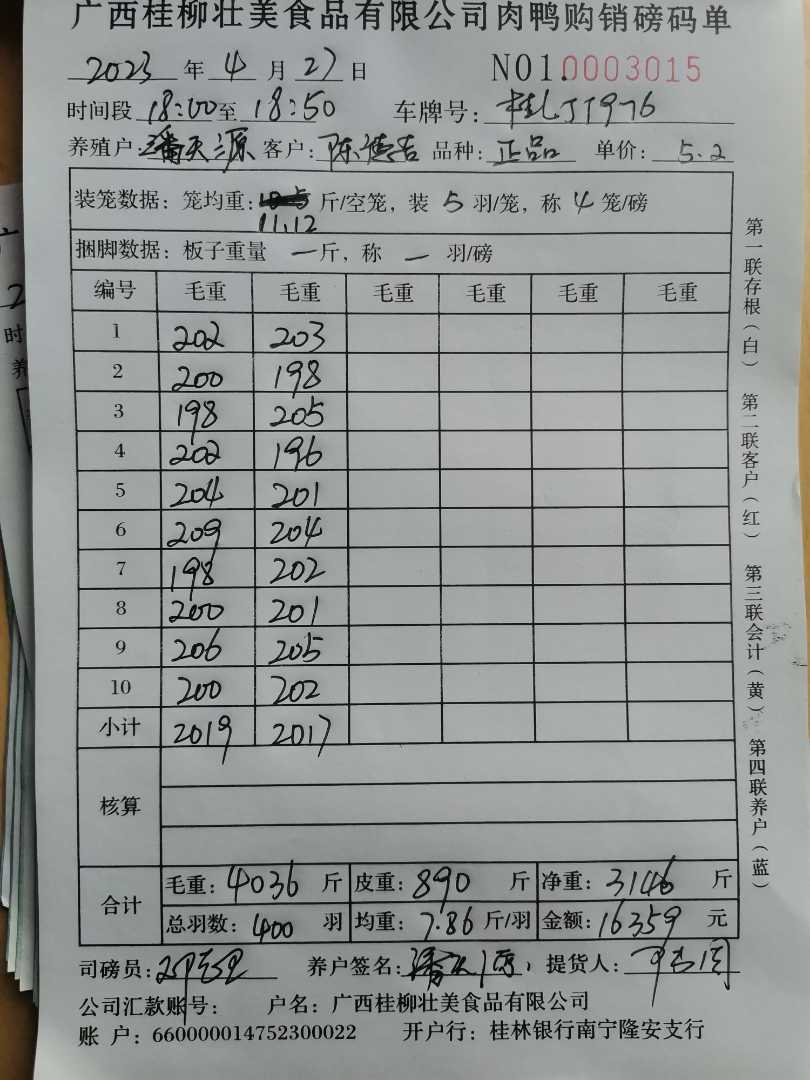 广西桂柳壮美食品有限公司肉鸭购销磅码单
2023 年 4 月 27 日 NO1.0003015
时间段 18:00至 18:50 车牌号:
养殖户:潘天源 客户:陈德吉 品种:正品 单价: 5.2
装笼数据:笼均重: 11.12 斤/空笼,装 5 羽/笼,称 4 笼/磅
捆脚数据:板子重量 一斤,称 一 羽/磅
编号 毛重 毛重 毛重 毛重 毛重 毛重
1 202 203
2 200 198
3 198 205
4 202 196
5 204 201
6 209 204
7 198 202
8 200 201
9 206 205
10 200 202
小计 2019 2017
核算
合计 毛重:4036 斤 皮重:890 斤 净重:3146 斤
总羽数:400 羽 均重:7.86 斤/羽 金额:16359 元
司磅员: 养户签名: 提货人:
公司汇款账号: 户名:广西桂柳壮美食品有限公司
账 户:660000014752300022 开户行:桂林银行南宁隆安支行
第一联存根(白) 第二联客户(红) 第三联会计(黄) 第四联养户(蓝)